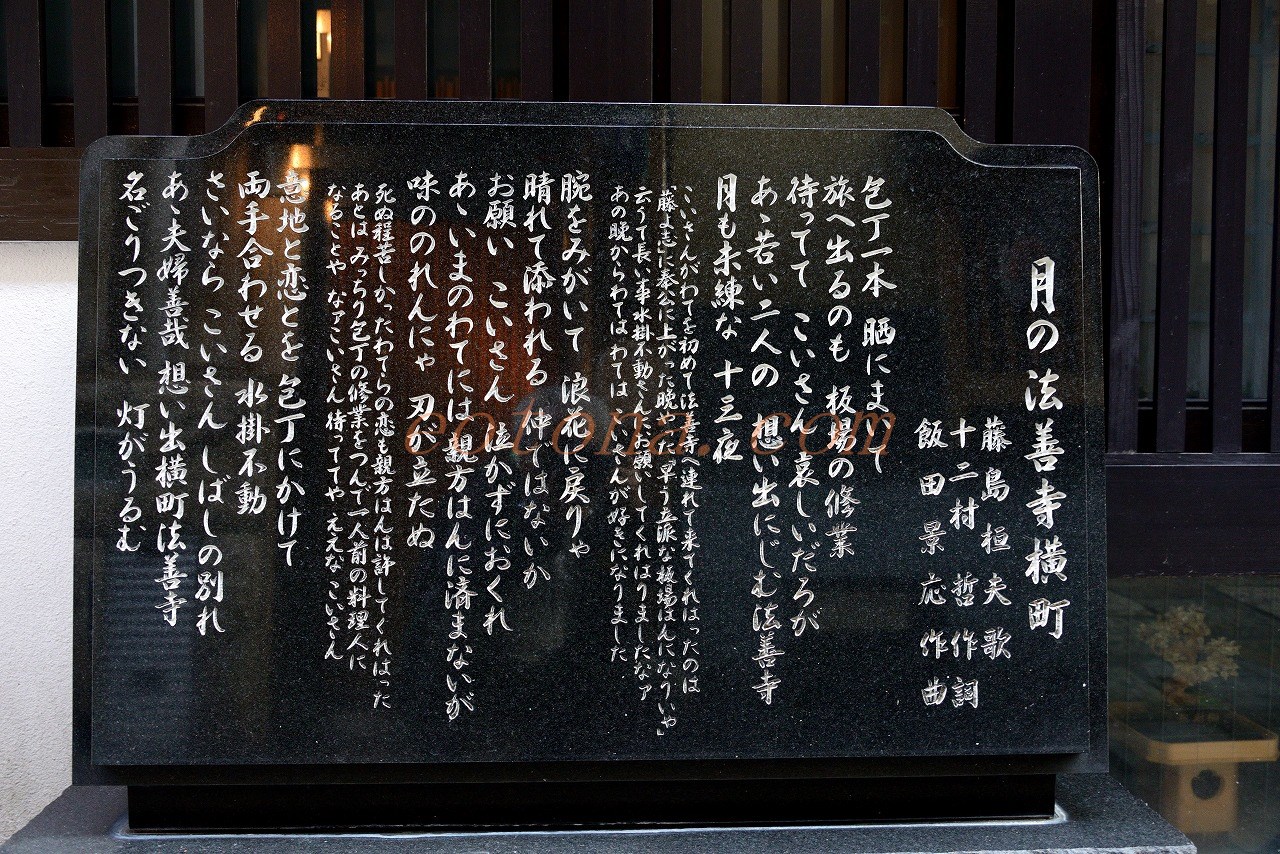 月の法善寺横町
藤島桓夫 歌
十二村哲 作詞
飯田景応 作曲
包丁一本 晒にまいて
旅へ出るのも 板場の修業
待ってて こいさん 哀しいだろが
あゝ若い二人の 想い出にじむ法善寺
月も未練な 十三夜
こいさんがわてを初めて法善寺へ連れて来てくれはったのは
「藤よ志に奉公に上がった晩やった 早う立派な板場はんになりいや」
云うて長い事水掛不動さんにお願いしてくれはりましたなァ
あの晩からわては わては こいさんが好きになりました
腕をみがいて 浪花に戻りゃ
晴れて添われる 仲ではないか
お願い こいさん 泣かずにおくれ
あゝいまのわてには 親方はんに済まないが
味ののれんにゃ 刃が立たぬ
死ぬ程苦しかったわてらの恋も親方はんは許してくれはった
あとは みっちり包丁の修業をつんで一人前の料理人に
なることや なァこいさん 待っててや ええな こいさん
意地と恋とを 包丁にかけて
両手合わせる 水掛不動
さいなら こいさん しばしの別れ
あゝ夫婦善哉 想い出横町法善寺
名ごりつきない 灯がうるむ
eotona.com